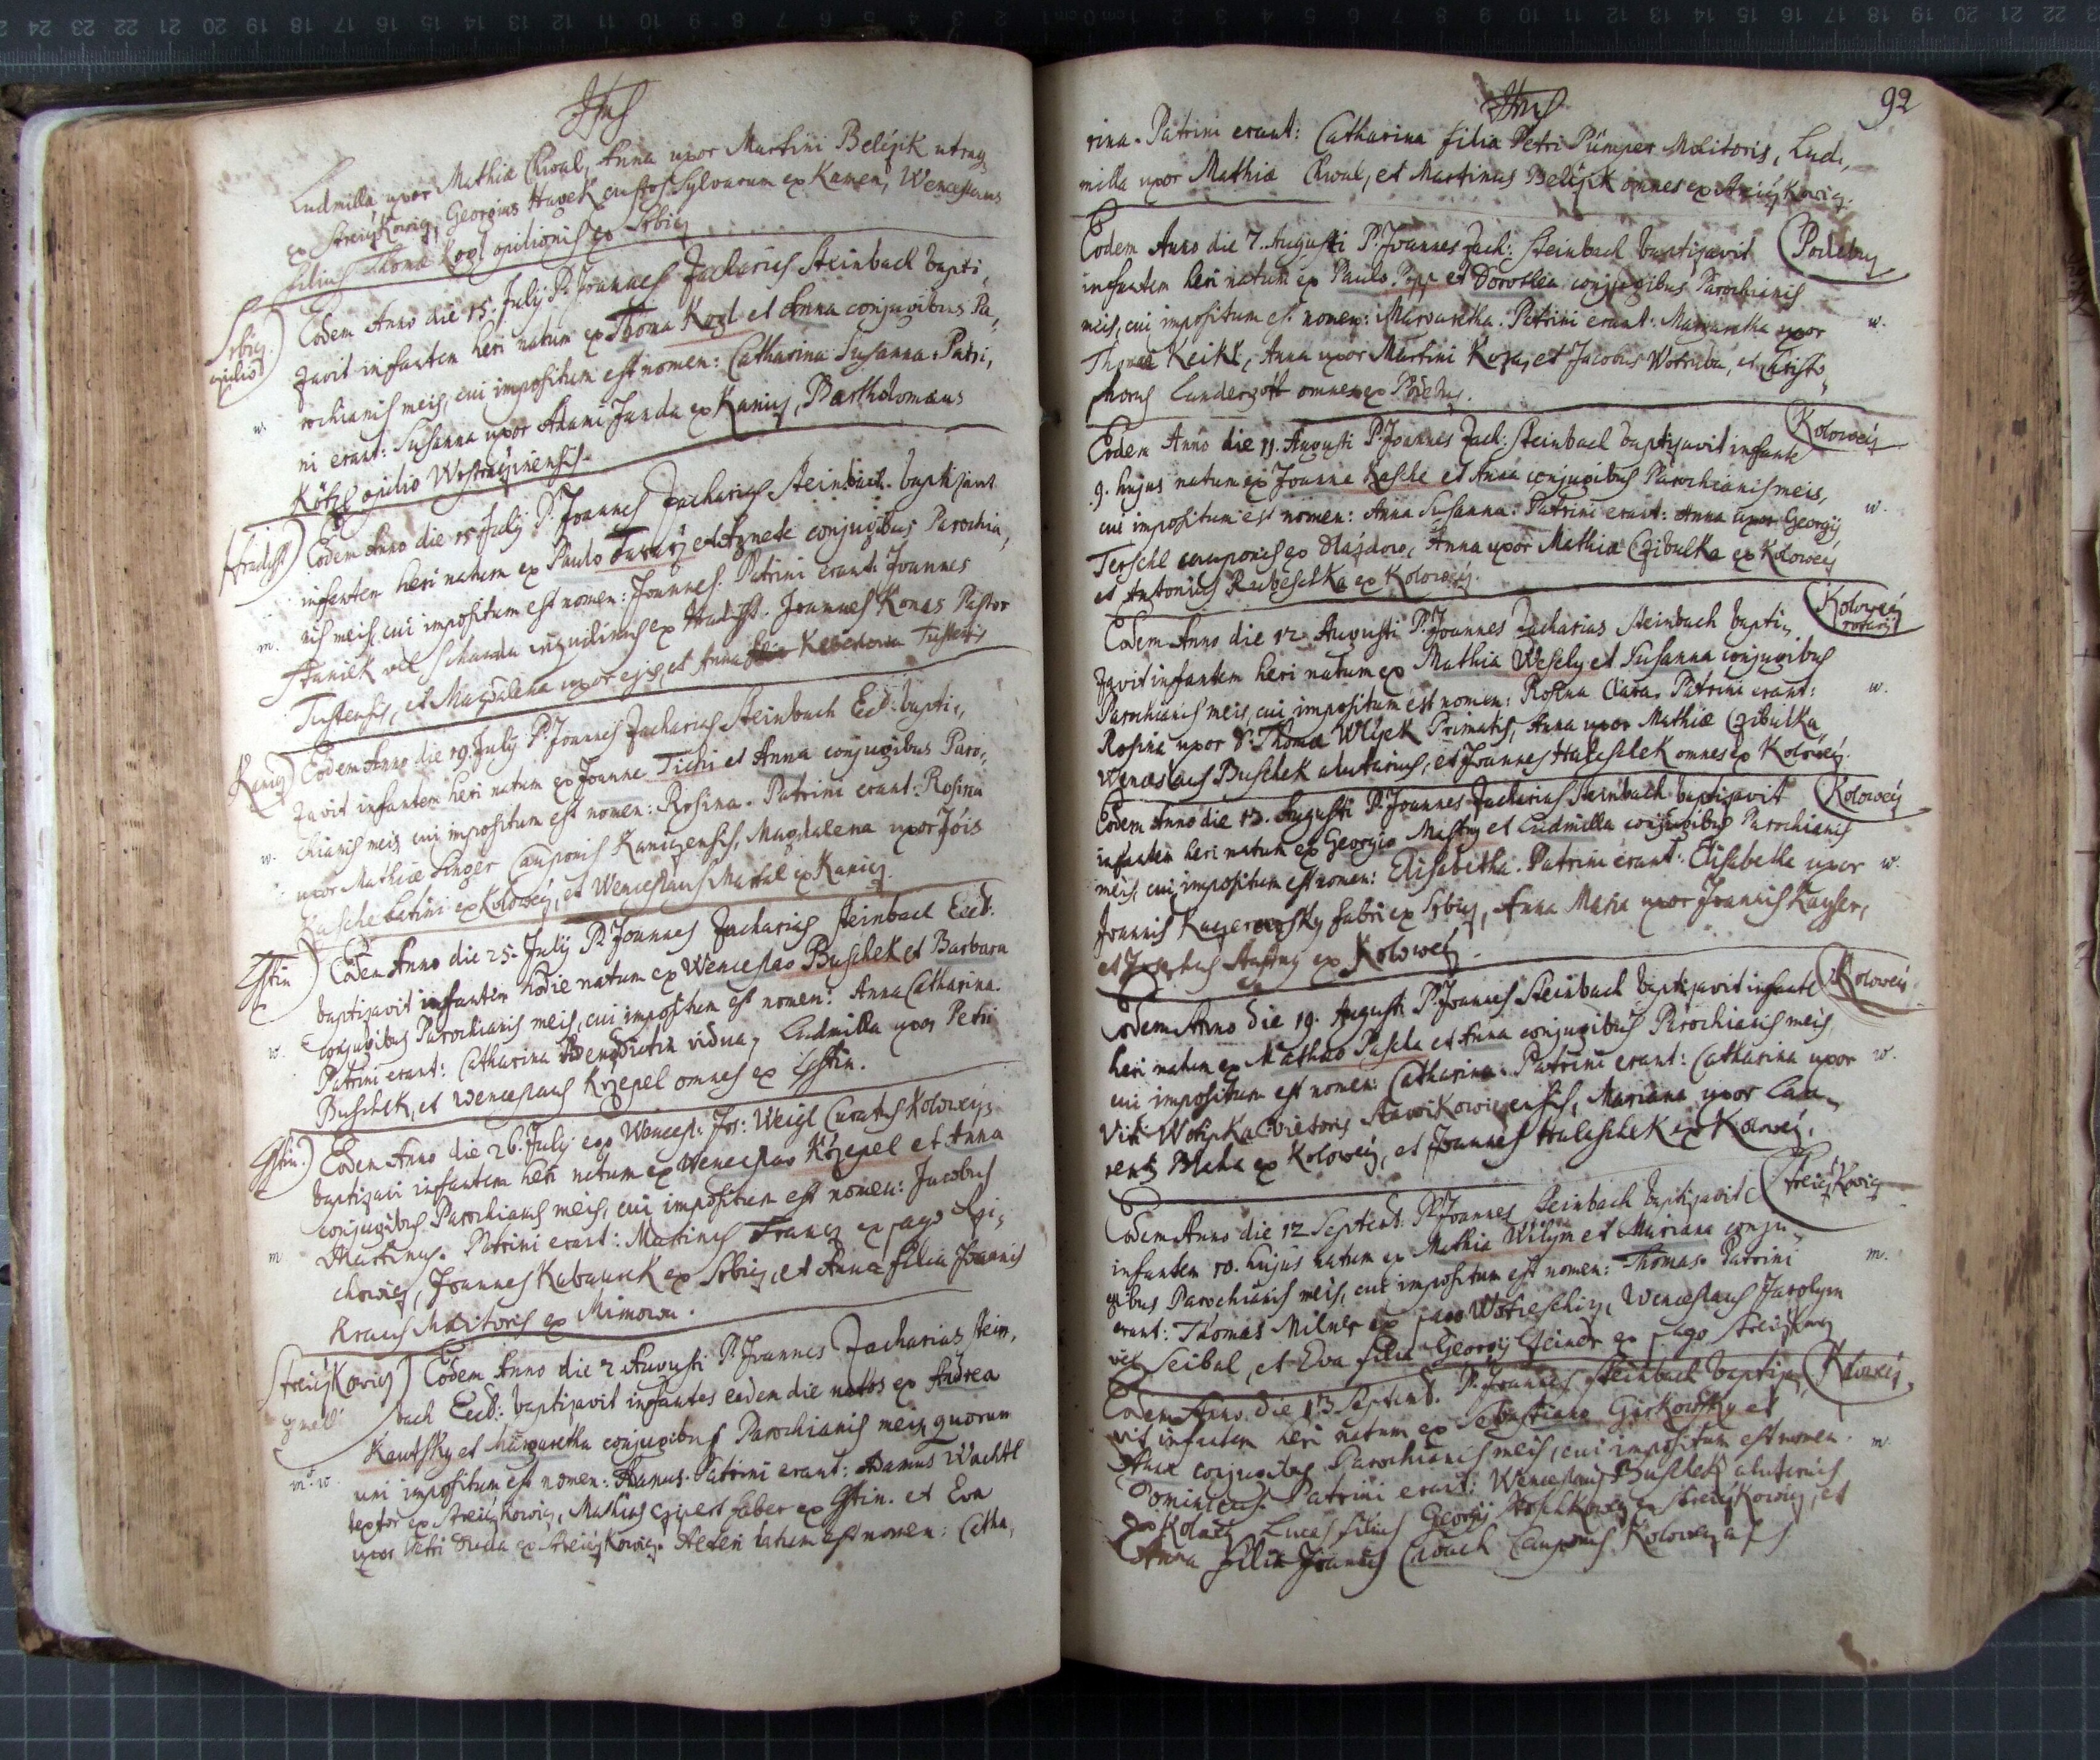 Ludmilla uxor Mathiæ Chval, Anna uxor Martini Beližik
ex Streiżkowicz, Georgius Hayek custos Sylvarum ex Kamen, Wenceslaus
filius Thomæ Kogl opilionis ex Srbicz
Srbicz
opilio
Eodem Anno die 15. July P. Joannes Zacharias Steinbach bapti,
zavit infantem heri natum ex Thoma Kogl et Anna conjugibus Pa,
rochianis meis, cui impositum est nomen: Catharina Susanna. Patri,
w.
ni erant: Susanna uxor Adami Janda ex Kanicz, Bartholomæus
Kötzl opilio
Hradischt
Eodem Anno die 15 July P. Joannes Zacharias Steinbach baptizavit
infantem heri natum ex Paulo et Agnete conjugibus Parochia,
nis meis, cui impositum est nomen: Joannes. Patrini erant: Joannes
m.
vel inquilinus ex Hradischt. Joannes Konas Pastor
et Magdalena uxor ejus, et Anna
Kanicz
Eodem Anno die 19. July P. Joannes Zacharias Steinbach Ecd: bapti,
zavit infantem heri natum ex Joanne Tichi et Anna conjugibus Paro,
chianis meis, cui impositum est nomen: Rosina. Patrini erant: Rosina
w.
uxor Mathiæ Singer Cauponis Kaniczensis, Magdalena uxor Jois
Kasche ex Koloweċ, et Wenceslaus Martal ex Kanicz.
Chstin
Eodem Anno die 25. July P. Joannes Zacharias Steinbach Ecd:
baptizavit infantem hodie natum ex Wenceslao Buschek et Barbara
conjugibus Parochianis meis, cui impositum est nomen: Anna Catharina.
w.
Patrini erant: Catharina vidua, Ludmilla uxor Petri
Buschek, et Wenceslaus Krzepel omnes ex Chstin.
Chstin.
Eodem Anno die 26. July ego Wencesl: Jos: Weigl Curatus
baptizavi infantem heri natum ex Wenceslao Krzepel et Anna
conjugibus Parochianis meis, cui impositum est nomen: Jacobus
m
Martinus. Patrini erant: Martinus Francz ex pago
Joannes Kabaurek ex Srbicz, et Anna filia Joannis
Kraus Molitoris ex Mimowa.
Streiżkowicz
gmelli
Eodem Anno die 2 Augusti P. Joannes Zacharias Stein,
bach Ecd: baptizavit infantes eadem die natos ex Andrea
Kautsky et Margaretha conjugibus Parochianis meis, quorum
m. w.
uni impositum est nomen: Adamus. Patrini erant: Adamus Wachtl
textor ex Streiżkowicz, Mathias faber ex Chstin. et Eva
uxor Petri Duda ex Streiżkowicz. Alteri datum est nomen: Catha,
92
rina. Patrini erant: Catharina filia Petri Pümper Molitoris, Lud,
milla uxor Mathiæ Chval, et Martinus Beližik omnes ex Streiżkowicz.
Eodem Anno die 7. Augusti P. Joannes Zach: Steinbach baptizavit
infantem heri natum ex Paulo et Dorothea conjugibus Parochianis
meis, cui impositum est nomen: Margaretha. Patrini erant: Margaretha uxor
w.
Thomæ Keikl, Anna uxor Martini Koza, et Jacobus Wotruba, et Christo,
phorus omnes ex
Koloweċ
Eodem Anno die 11. Augusti P. Joannes Zach: Steinbach baptizavit infante
9. hujus natum ex Joanne Kasche et Anna conjugibus Parochianis meis,
w.
cui impositum est nomen: Anna Susanna. Patrini erant: Anna uxor Georgij
Terschl cauponis ex Anna uxor Mathiæ Czibulka ex Koloweċ
et Antonius Rubeschka ex Koloweċ.
Koloweċ
Eodem Anno die 12 Augusti P. Joannes Zacharias Steinbach bapti,
zavit infantem heri natum ex Mathia Wesely et Susanna conjugibus
Parochianis meis, cui impositum est nomen: Rosina Clara. Patrini erant:
w.
Rosina uxor D. Thomæ Wlčjek Primatis, Anna uxor Mathiæ Czibulka,
Wenceslaus Buschek alutarius, et Joannes Haleschek omnes ex Koloweċ.
Koloweċ
Eodem Anno die 13. Augusti P. Joannes Zacharias Steinbach baptizavit
infantem heri natum ex Georgio Mastny et Ludmilla conjugibus Parochianis
meis, cui impositum est nomen: Elisabetha. Patrini erant: Elisabetha uxor
w.
Joannis Kagerowsky fabri ex Srbicz, Anna Maria uxor Joannis Kayser,
et ex Koloweċ.
Koloweċ
Eodem Anno die 19. Augusti P. Joannes Steinbach baptizavit infante
heri natum ex Mathæo Pascha et Anna conjugibus Parochianis meis,
w.
cui impositum est nomen: Catharina. Patrini erant: Catharina uxor
Viti Wotipka Vietoris Mariana uxor Lau,
rentij Blaha ex Koloweċ, et Joannes Haleschek ex Koloweċ.
Streiżkowicz
Eodem Anno die 12 Septemb. P. Joannes Steinbach baptizavit
infantem 10. hujus natum ex Mathia Wilym et Mariana conju,
m.
gibus Parochianis meis, cui impositum est nomen: Thomas. Patrini
erant: Thomas Milner ex pago Wotieschin, Wenceslaus Jarolym
vel Seibal, et Eva filia Georgij ex pago Streiżkowicz
Koloweċ
Eodem Anno die 13 Septemb. P. Joannes Steinbach baptiza,
vit infantem heri natum ex Sebastiano Girkowsky et
m.
Anna conjugibus Parochianis meis, cui impositum est nomen
Dominicus. Patrini erant: Wenceslaus Buschek alutarius
ex Koloweċ Lucas filius Georgij ex Streiżkowicz, et
Anna filia Joannis Cauponis